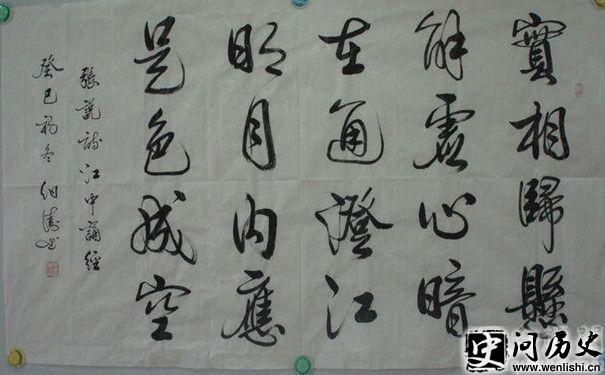 實相歸懸
解虛心暗
在通澄江
明月内應
是色成空
張說詩江中誦經
癸巳初冬
问历史
www.wenlishi.cn